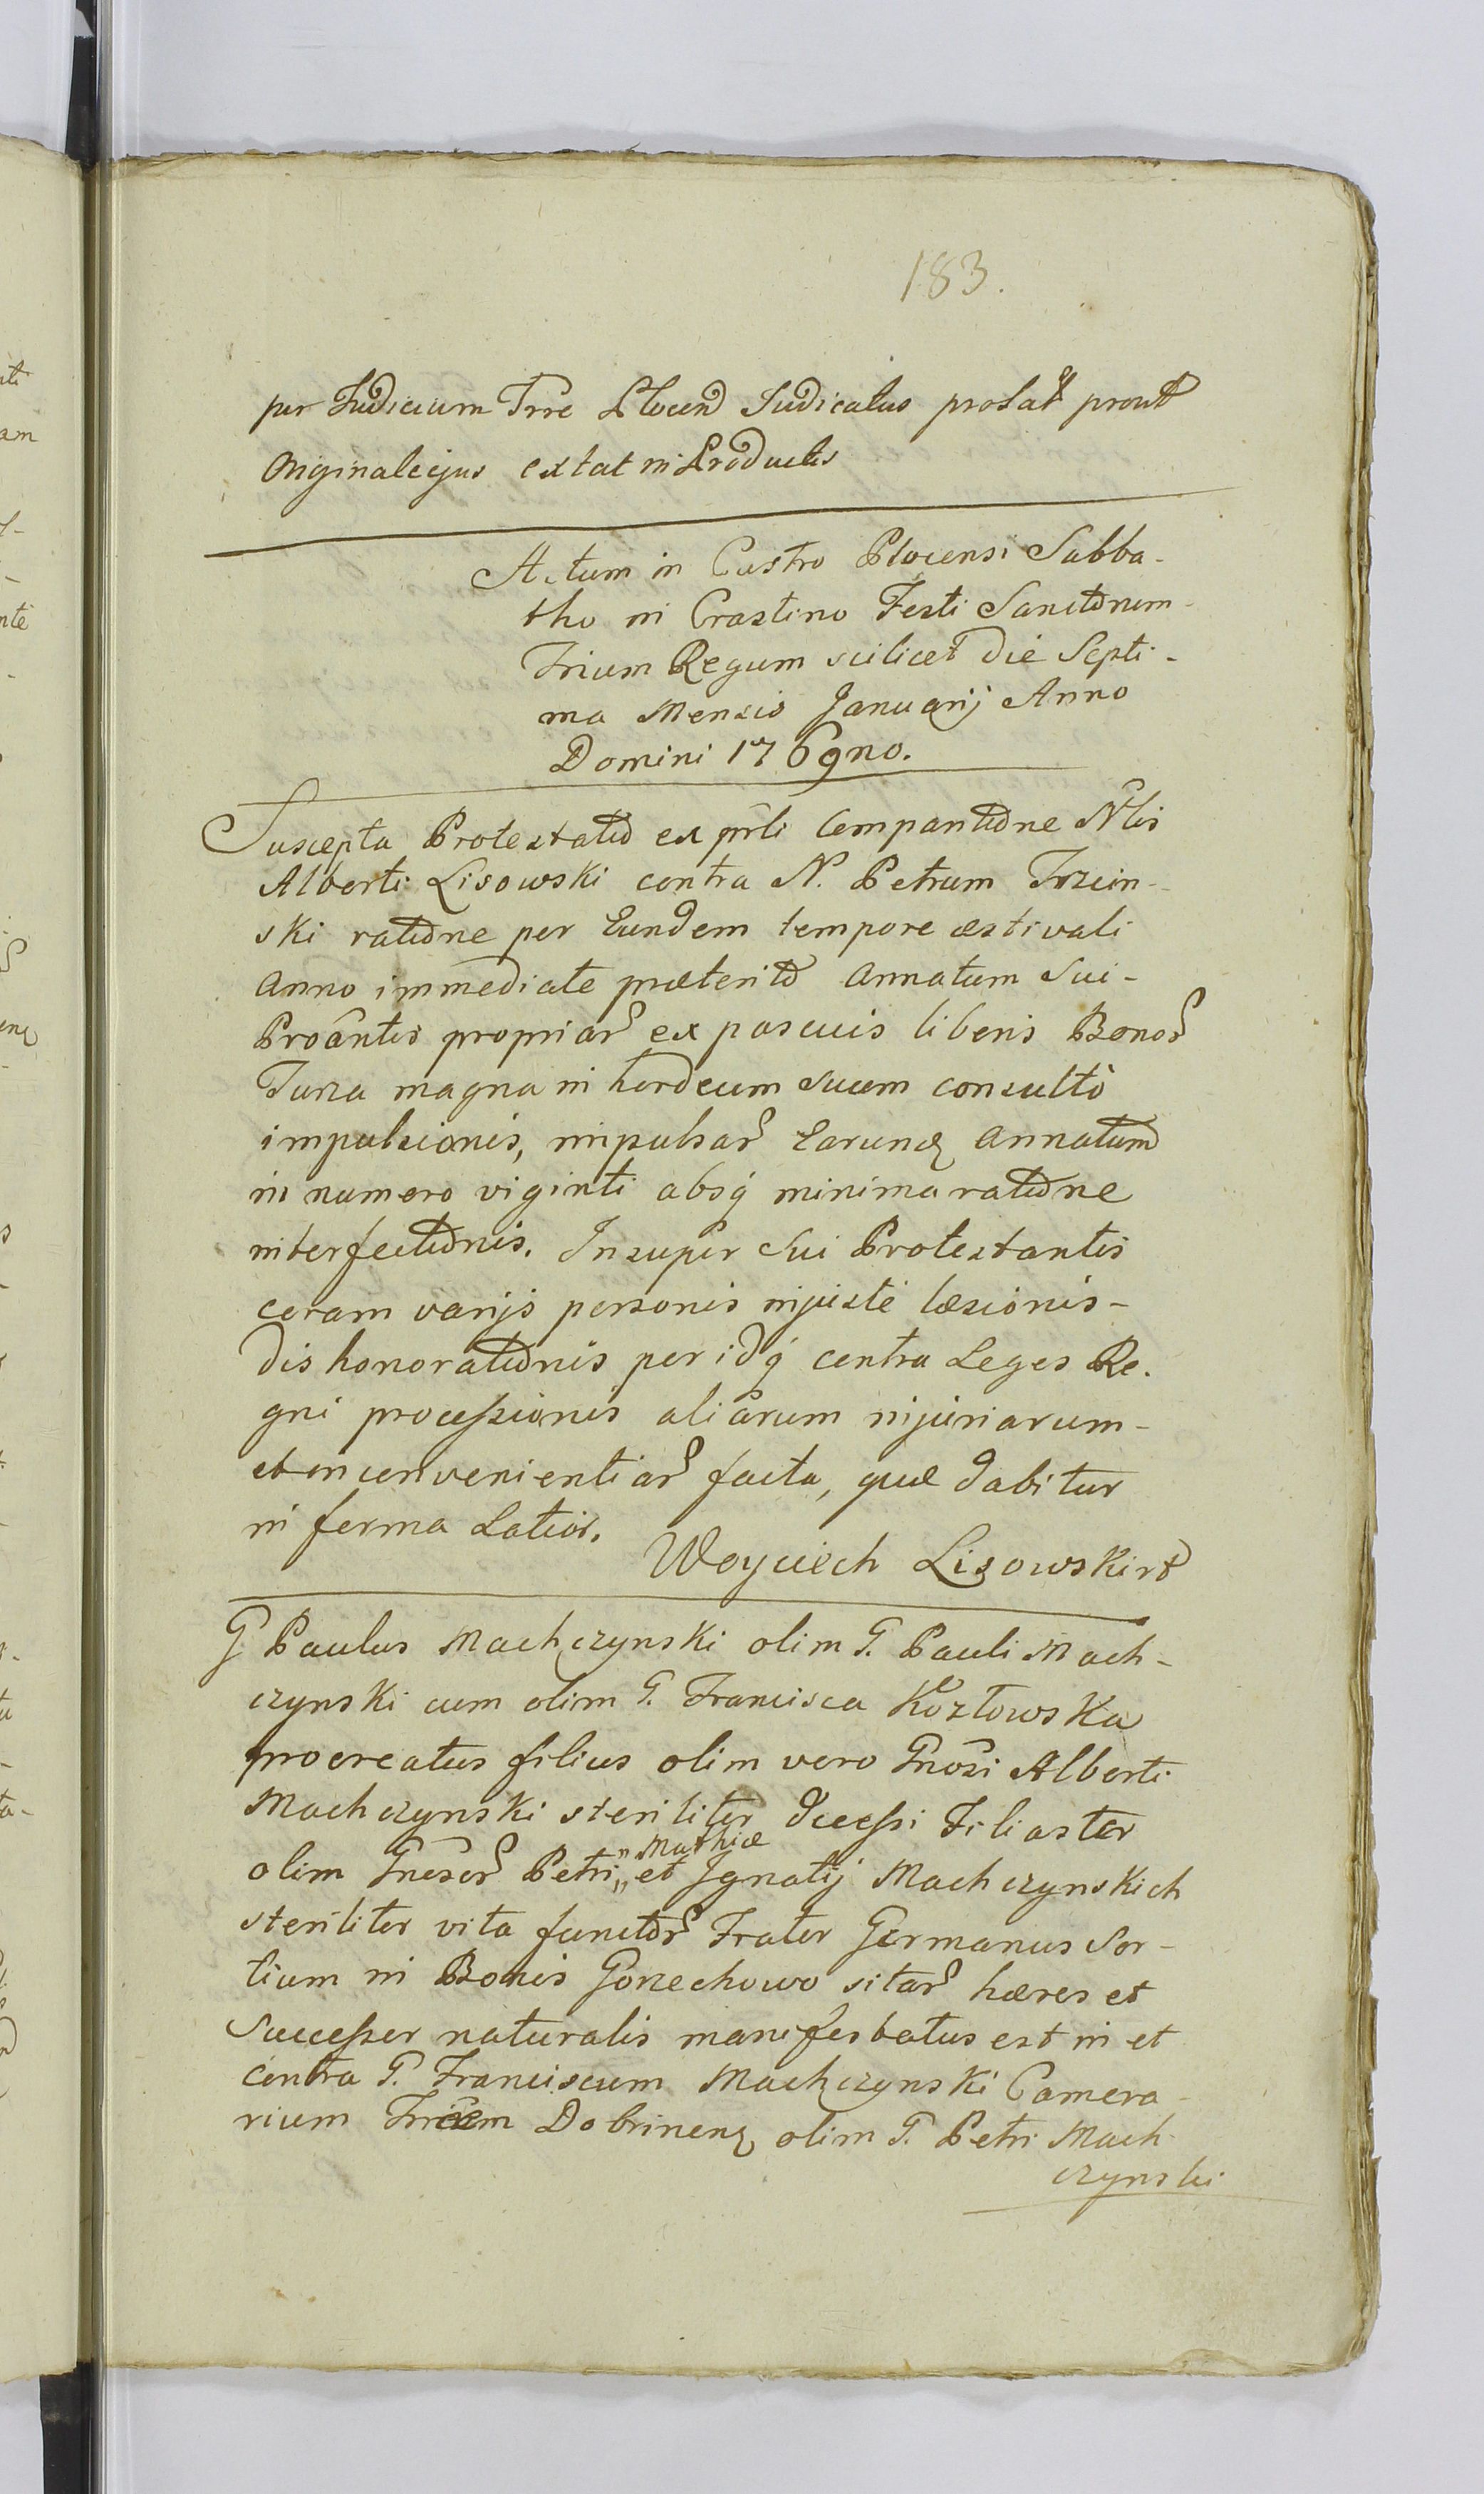 183.
per Judicium Trre Plocen Judicatus probat prout
Originale ejus extat in Productis
Actum in Castro Plocensi Sabba-
tho in Crastino Festi Sanctorum
Trium Regum scilicet die Septi-
ma Mensis Januarij Anno
Domini 1769no.
Suscepta Protestatio ex prsli Comparitione Nlis
Alberti Lisowski contra N. Petrum Trzcin-
ski ratione per Eundem tempore æstivali
Anno immediate præterito Annatum Sui-
Proântis propriar ex pascuis liberis Bonor
Turza magna in hordeum suum consulto
impulsionis, impulsar Earunq Annatum
in numero viginti absq minima ratione
interfectionis. Insuper Sui Protestantis
coram varijs personis injuste læsionis-
dishonorationis per idq contra Leges Re-
gni processionis aliarum injuriarum-
et inconvenientiar facta, quæ dabitur
in forma Latior.
Woyciech Lisowski
G Paulus Machczynski olim G. Pauli Mach-
czynski cum olim G. Francisca Kozłowska
procreatus filius olim vero Gnosi Alberti
Machczynski steriliter decessi Filiaster
olim Gnosor Petri „ Mathiæ „ et Ignatij Machczynskich
steriliter vita functor Frater Germanus Sor-
tium in Bonis Gorzechowo sitar hæres et
Successor naturalis manifestatus est in et
contra G. Franciscum Machczynski Camera-
rium Dobrinenq olim G. Petri Mach
czynski